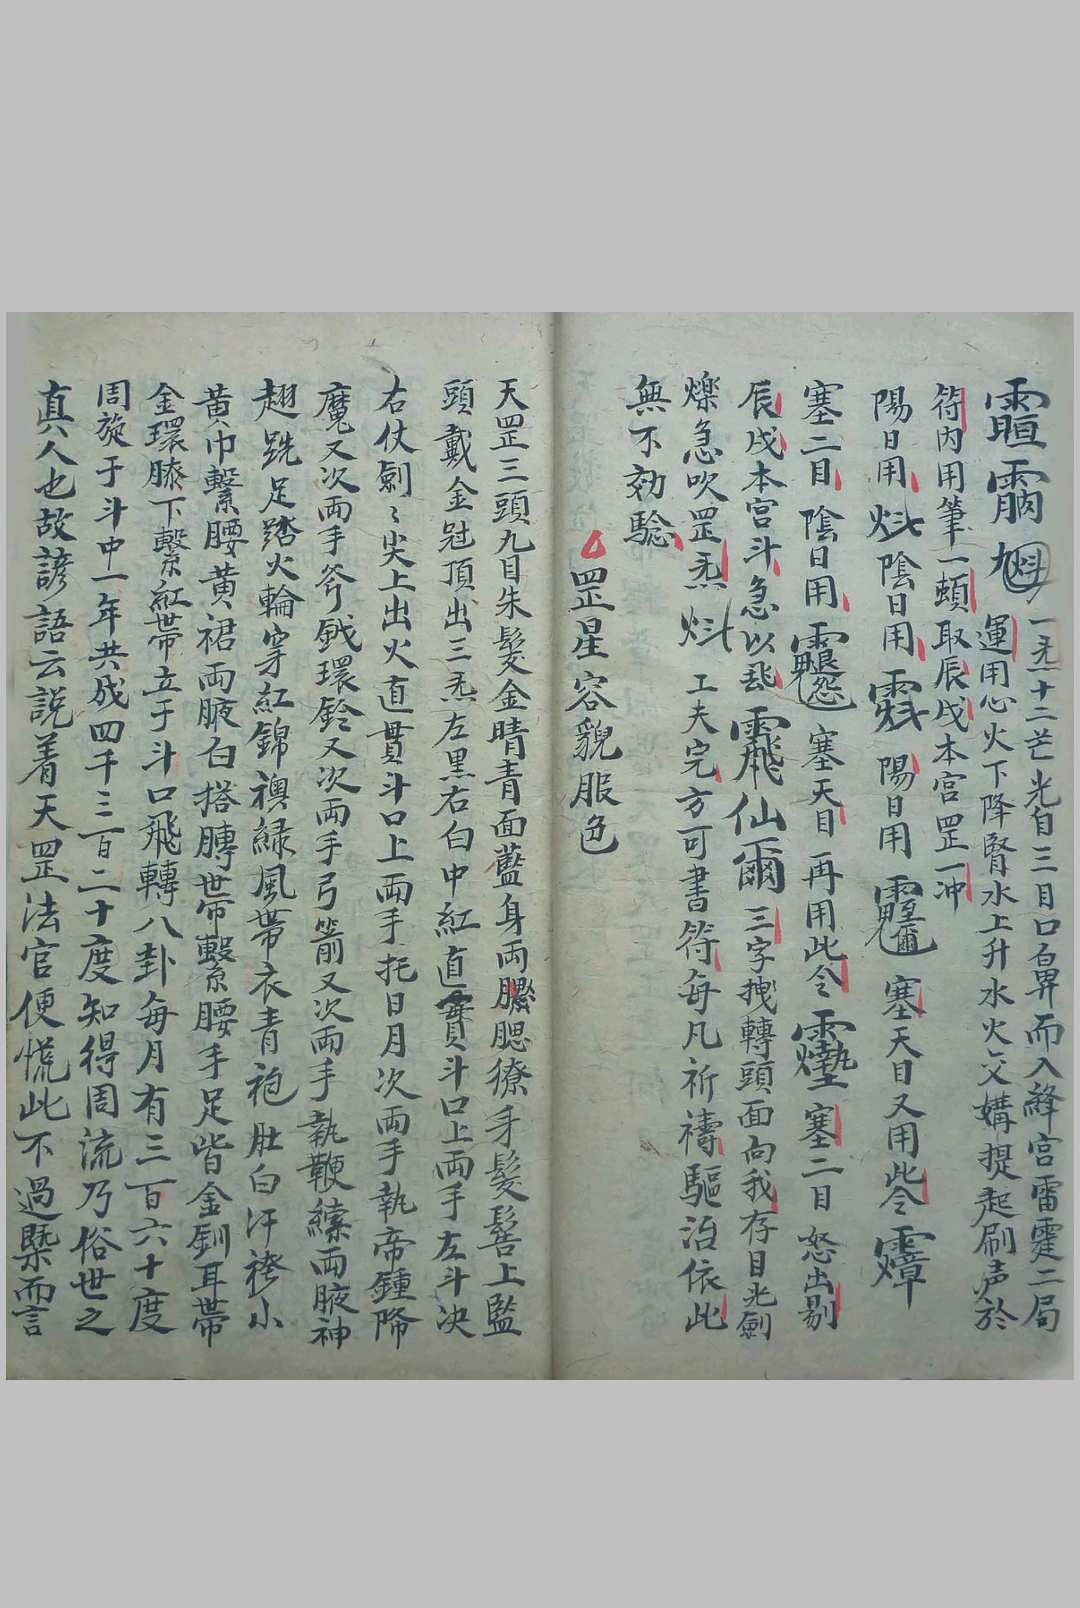 一炁十二芒光自三目口鼻而入絳宮雷霆二局
運用心火下降腎水上升水火交媾提起刷声於
符内用筆一頓取辰戌本宮罡一冲
陽日用 陰日用 陽日用 塞天目又用此令
塞二目陰日用 塞天目再用此令 塞二目怒出剔
辰戌本宮斗急以 仙 三字拽轉頭面向我存目光劍
爍急吹罡炁 工夫完方可書符每凡祈禱驅治依此
無不効驗
罡星容貌服色
天罡三頭九目朱髮金睛青面藍身兩腮獠牙髮髻上監
頭戴金冠頂出三炁左黑右白中紅直貫斗口上兩手左斗决
右仗劍〻尖上出火直貫斗口上兩手托日月次兩手執帝鍾降
魔又次兩手斧鉞環鈴又次兩手弓箭又次兩手執鞭縤兩腋神
翅跣足踏火輪穿紅錦襖緑風帶衣青袍肚白汗袴小
黃巾繫腰黃裙兩腋白搭膊帶繫腰手足皆金釧耳帶
金環膝下繫紅帶立于斗口飛轉八卦每月有三百六十度
周旋于斗中一年共成四千三百二十度知得周流乃俗世之
真人也故諺語云説着天罡法官便慌此不過槩而言